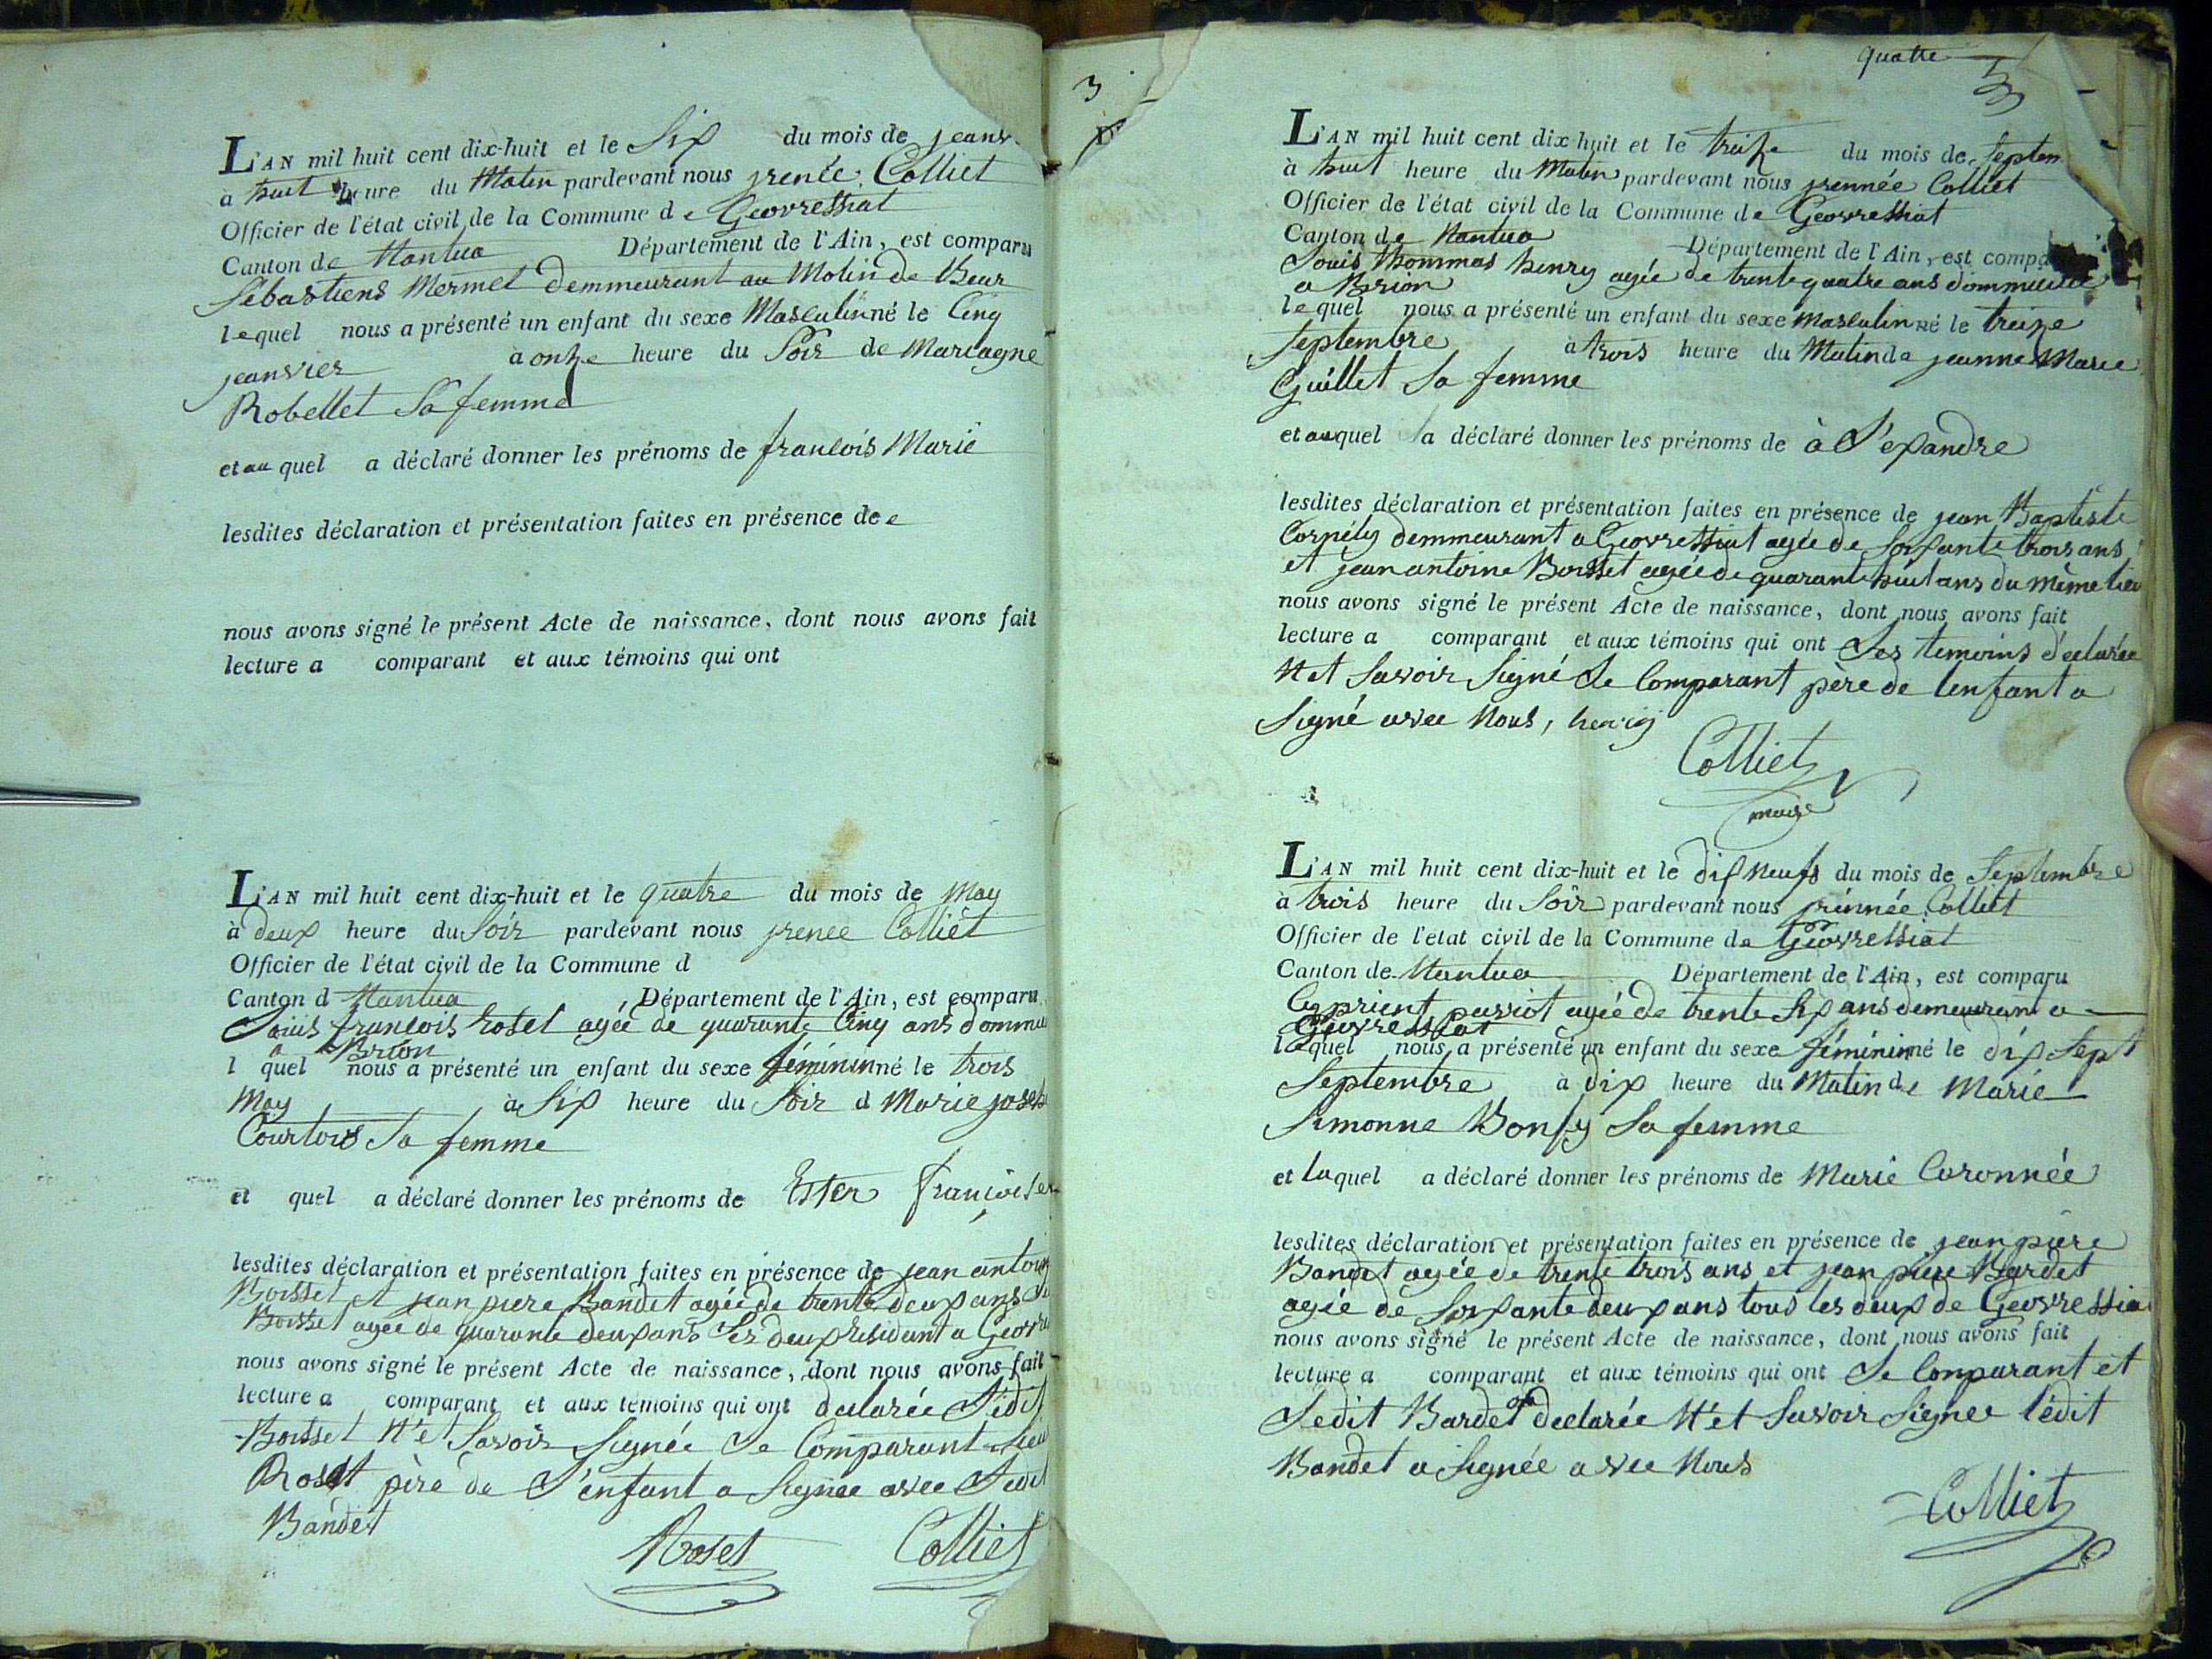 L'AN mil huit cent dix-huit et le Six du mois de jeanv
à huit heure du Matin pardevant nous jrenée Colliet
Officier de l'état civil de la Commune de Geovressiat
Canton de Nantua Département de l'Ain, est comparu
Sébastiens Mermet demmeurant au Molin de Beur
lequel nous a présenté un enfant du sexe Masculin né le Cinq
jeanvier à onze heure du Soir de Mariagne
Robellet Sa femme
et au quel a déclaré donner les prénoms de francois Marie
lesdites déclaration et présentation faites en présence de e
nous avons signé le présent Acte de naissance, dont nous avons fait
lecture a comparant et aux témoins qui ont
L'AN mil huit cent dix-huit et le quatre du mois de May
à deux heure du Soir pardevant nous jrenee Colliet
Officier de l'état civil de la Commune d
Canton d Nantua Département de l'Ain, est comparu
Louis francois Roset agée de quarante Cinq ans dommu
a Brion
l quel nous a présenté un enfant du sexe féminin né le trois
May à Six heure du Soir d Marie joseh
Courtois Sa femme
et quel a déclaré donner les prénoms de Ester françoise
lesdites déclaration et présentation faites en présence de jean antoin
Boisset et jean piere Bandet agée de trente deux ans Le
Boisset agée de quarante deux ans Les deux residant a Geovre
nous avons signé le présent Acte de naissance, dont nous avons fait
lecture a comparant et aux témoins qui ont declarée Ledit
Boisset N'et Savoir Signée Le Comparant
Roset père de L'enfant a Signée avec Ledit
Bandet
Roset Colliet
3
quatre
L'AN mil huit cent dix-huit et le treize du mois de Septem
à huit heure du Matin pardevant nous jrennée Colliet
Officier de l'état civil de la Commune de Geovressiat
Canton de Nantua Département de l'Ain, est compa
Louis Thommas henry agée de trente quatre ans dommicilié
a Brion
lequel nous a présenté un enfant du sexe Masculin né le treize
Septembre à trois heure du Matin de jeanne Marie
Guillet Sa femme
et auquel a déclaré donner les prénoms de à L'exandre
lesdites déclaration et présentation faites en présence de jean Baptiste
Cornély demmeurant a Geovressiat agée de Soixante trois ans
et jean antoine Boisset agée de quarante huit ans du même lieu
nous avons signé le présent Acte de naissance, dont nous avons fait
lecture a comparant et aux témoins qui ont Les temoins déclarée
N et Savoir Signé Le Comparant père de lenfant a
Signé avec Nous, henry
Colliet
maire
L'AN mil huit cent dix-huit et le dix neufs du mois de Septembre
à trois heure du Soir pardevant nous jrénnée Colliet
Officier de l'etat civil de la Commune de Geovressiat
Canton de Nantua Département de l'Ain, est comparu
Cyprient parriot agée de trente Six ans demeurant a
Geovressiat
lequel nous a présenté un enfant du sexe féminin né le dix Sept
Septembre à dix heure du Matin de Marie
Simonne Bonfy Sa femme
et laquel a déclaré donner les prénoms de Marie Caronnée
lesdites déclaration et présentation faites en présence de jean piere
Bandet agée de trente trois ans et jean piere Bardet
agée de Soixante deux ans tous les deux de Geovressia
nous avons signé le présent Acte de naissance, dont nous avons fait
lecture a comparant et aux témoins qui ont Le Comparant et
Ledit Bardet on declarée N'et Savoir Signee lédit
Bandet a Signée avec Nous
Colliet